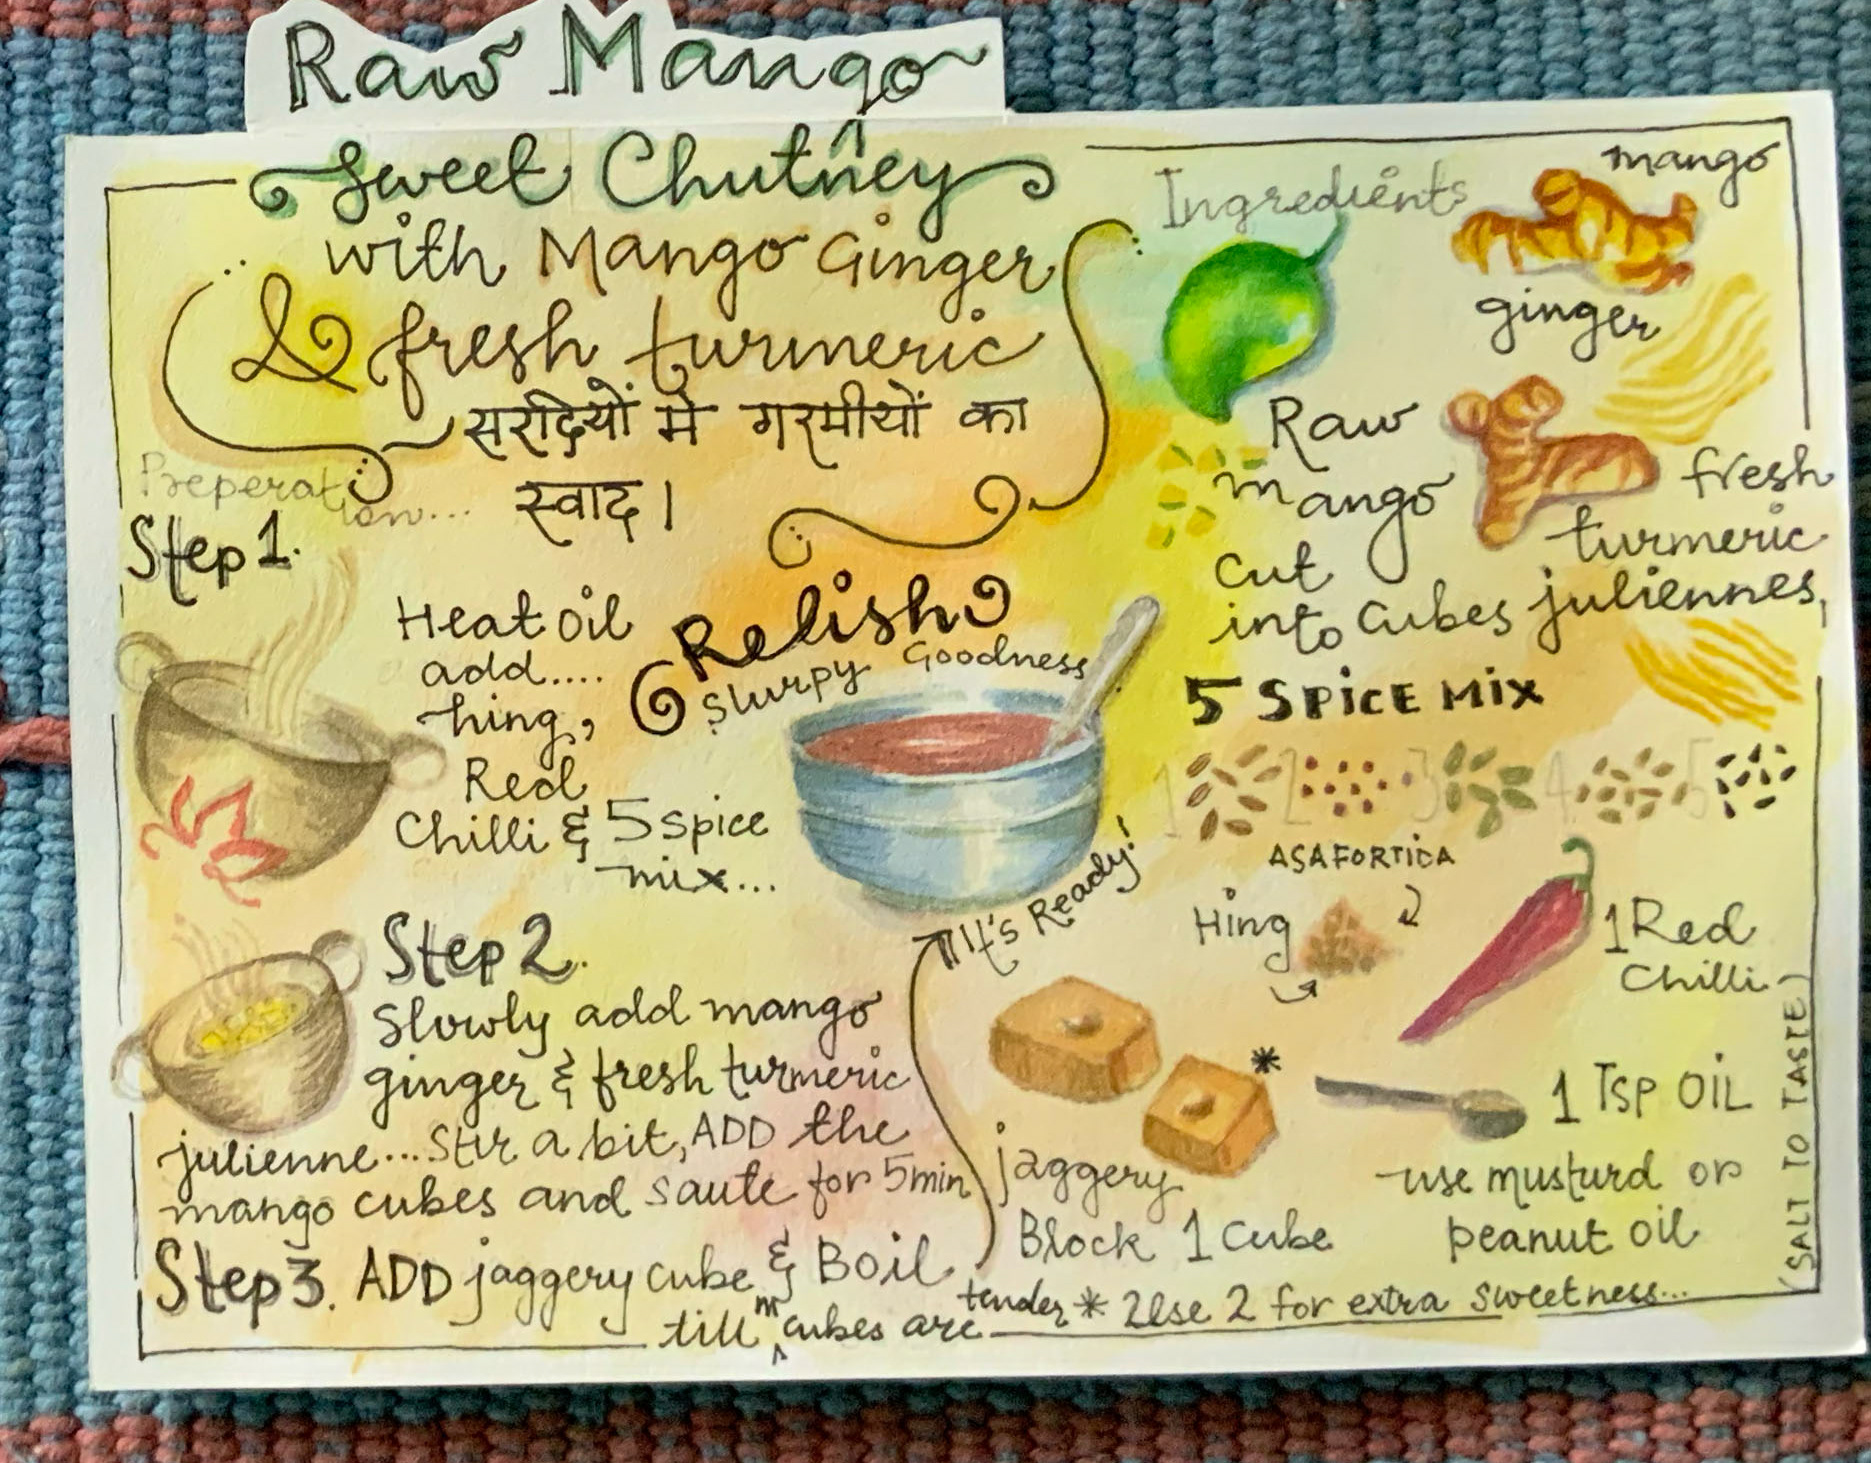 Raw Mango
Sweet Chutney
with Mango Ginger
& fresh turmeric
सरदियों मे गरमीयों का
स्वाद।
Preperation...
Step 1.
Heat oil
add....
hing,
Red
Chilli & 5 spice
mix...
Step 2.
Slowly add mango
ginger & fresh turmeric
julienne... Stir a bit, ADD the
mango cubes and saute for 5min
Step 3. ADD jaggery cube & Boil
till m cubes are tender
Relish
Slurpy Goodness
It's Ready!
Ingredients
mango
ginger
Raw
mango
cut
into cubes
fresh
turmeric
juliennes,
5 SPICE MIX
1 2 3 4 5
ASAFORTIDA
Hing
1 Red
Chilli
jaggery
Block 1 cube
1 TSP OIL
use musturd or
peanut oil
* Use 2 for extra sweetness...
(SALT TO TASTE)